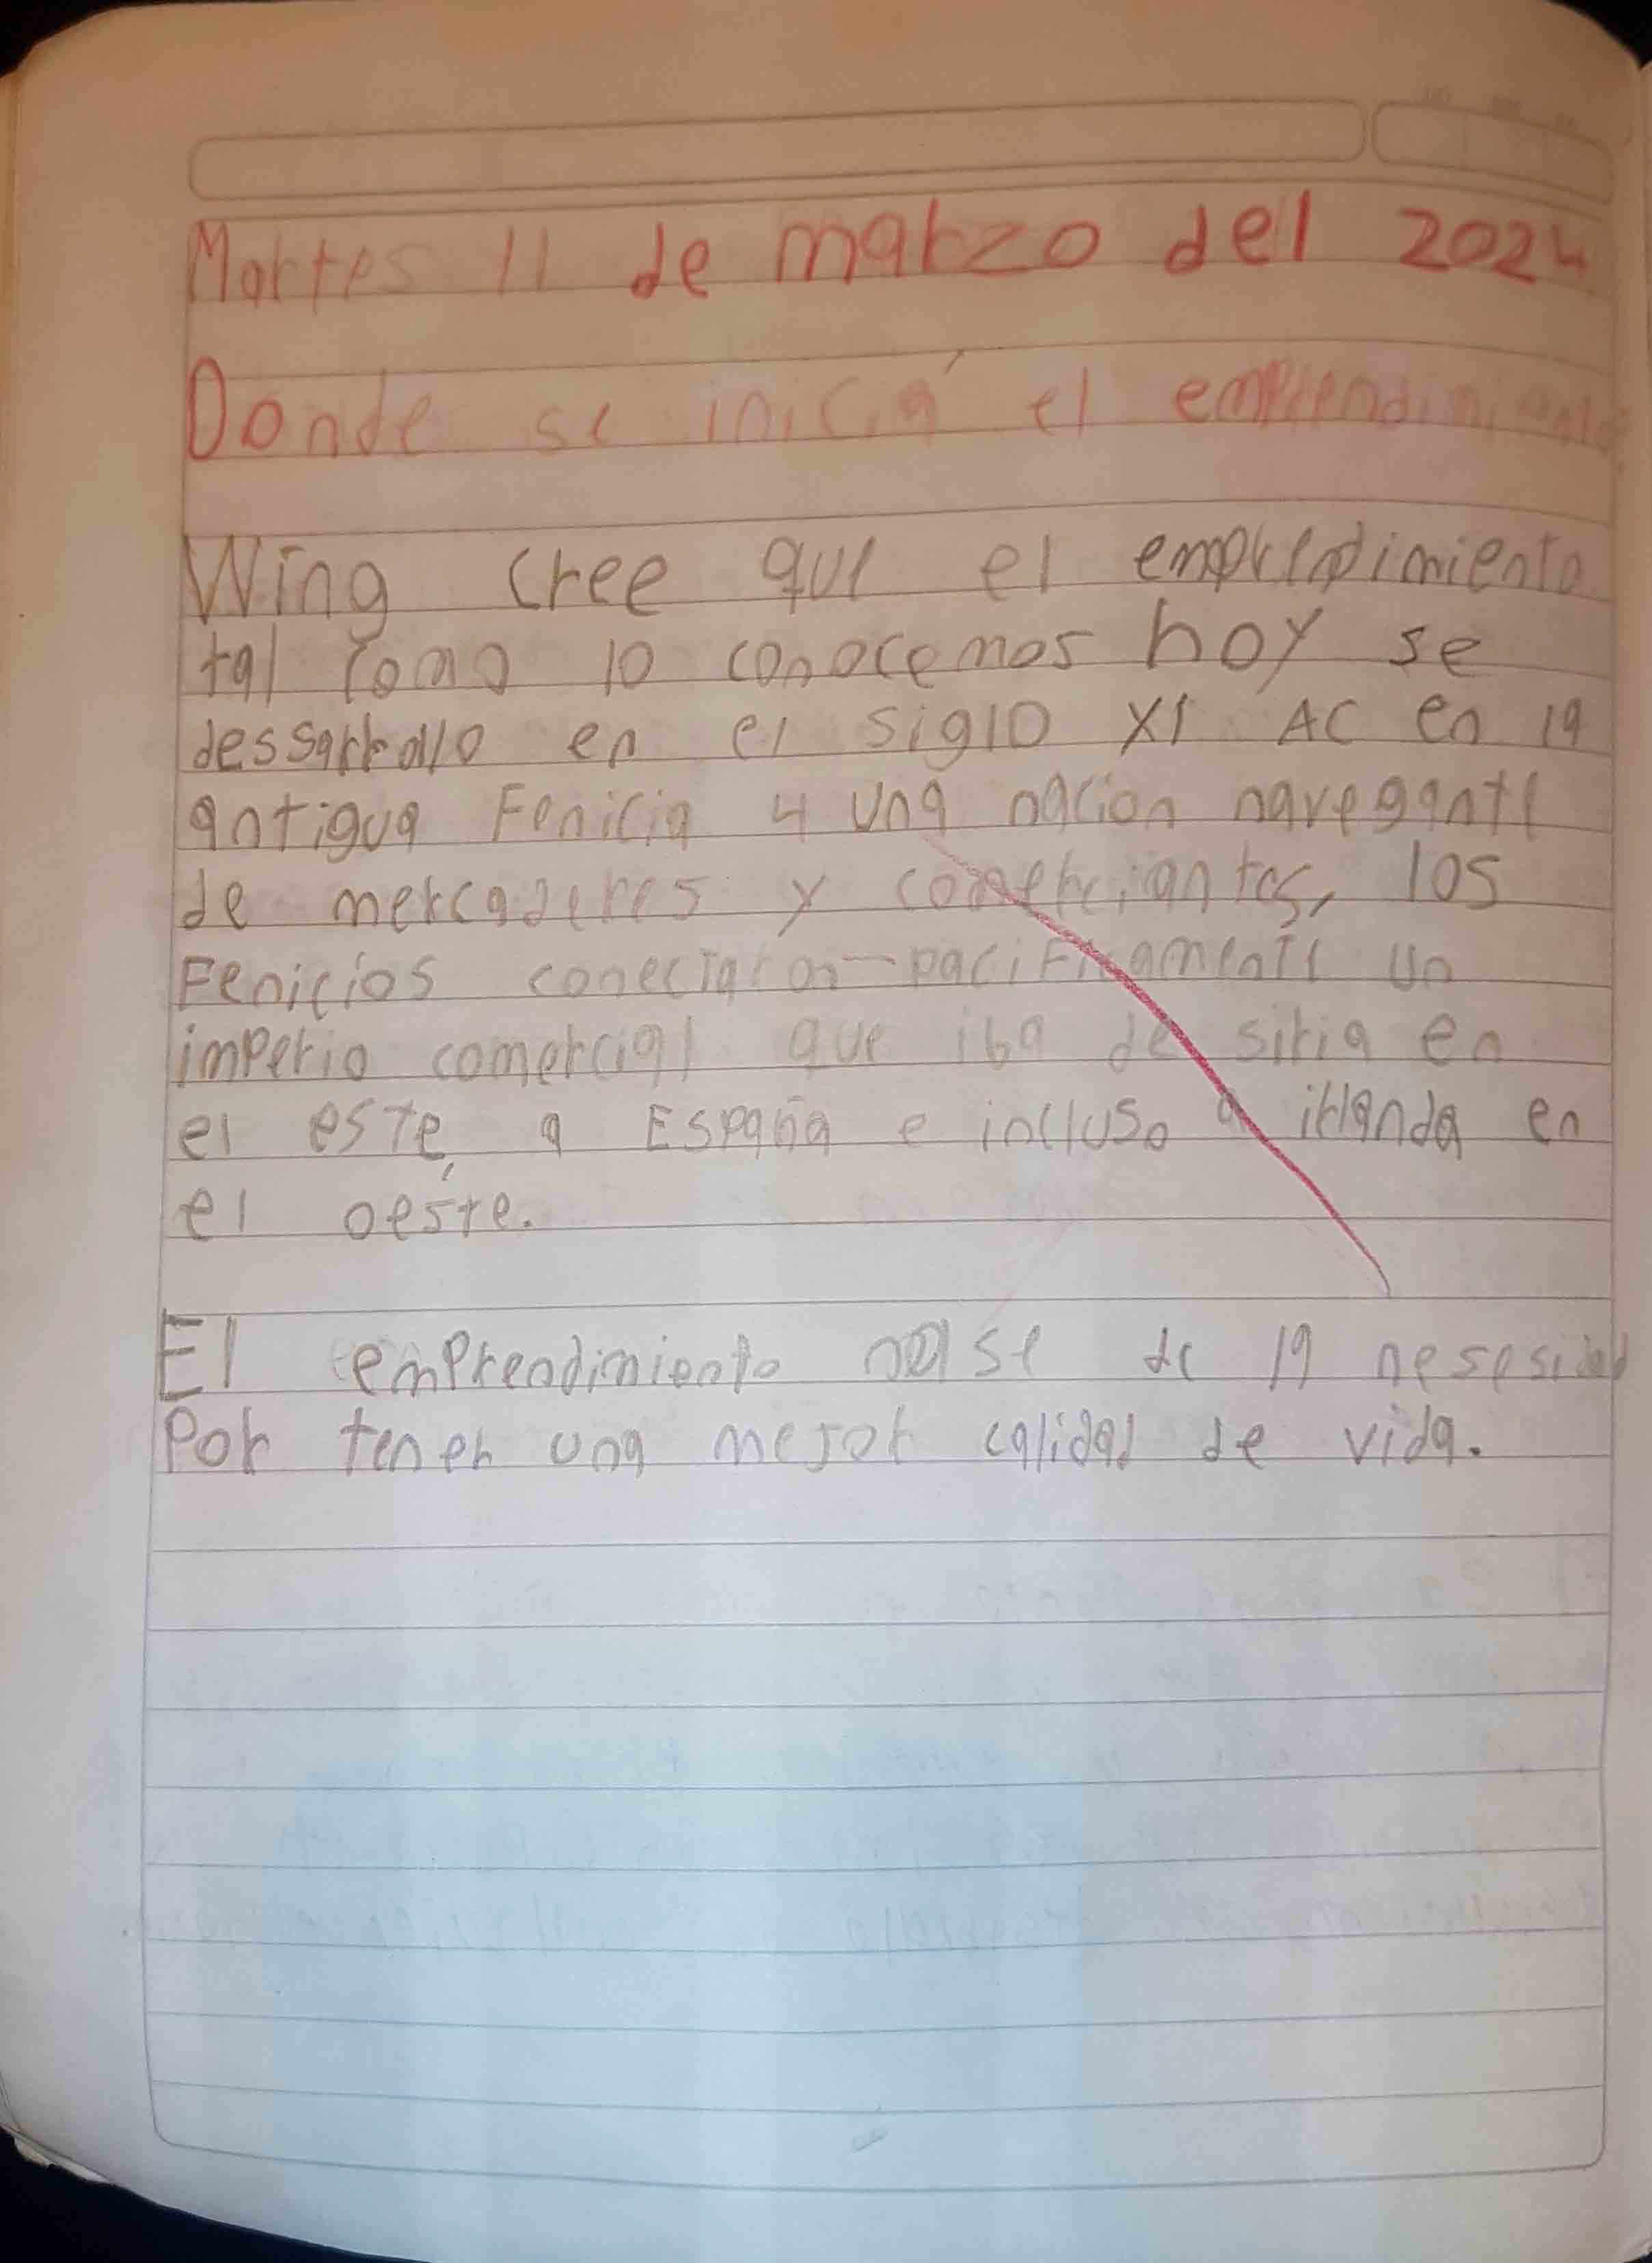 Martes 11 de marzo del 2024
Donde se iniciá el emprendimiento
Wing cree que el emprendimiento
tal como lo conocemos hoy se
dessarrollo en el siglo XI AC en la
antigua Fenicia y una nacion navegante
de mercaderes y comerciantes, los
Fenicios conectaron pacificamente un
imperio comercial que iba de siria en
el este, a España e incluso a irlanda en
el oeste.
El emprendimiento se de la nesesidad
Por tener una mejor calidad de vida.